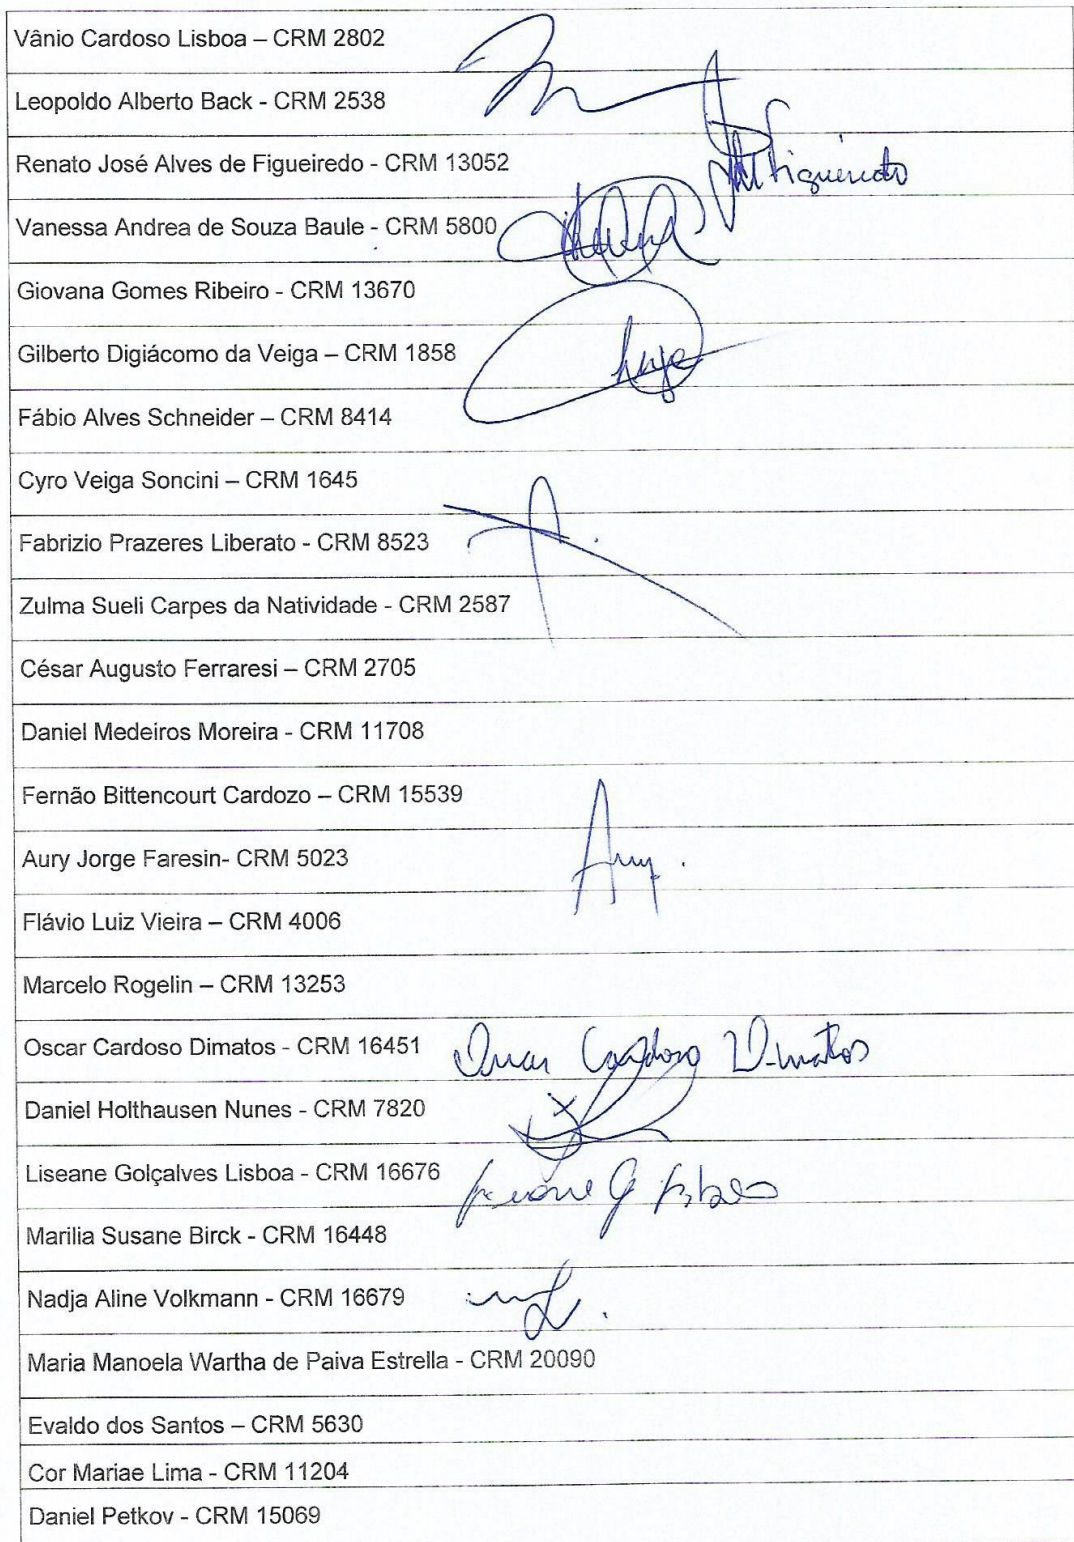 Vânio Cardoso Lisboa – CRM 2802
Leopoldo Alberto Back - CRM 2538
Renato José Alves de Figueiredo - CRM 13052
Figueiredo
Vanessa Andrea de Souza Baule - CRM 5800
Giovana Gomes Ribeiro - CRM 13670
Gilberto Digiácomo da Veiga – CRM 1858
Fábio Alves Schneider – CRM 8414
Cyro Veiga Soncini – CRM 1645
Fabrizio Prazeres Liberato - CRM 8523
Zulma Sueli Carpes da Natividade - CRM 2587
César Augusto Ferraresi – CRM 2705
Daniel Medeiros Moreira - CRM 11708
Fernão Bittencourt Cardozo – CRM 15539
Aury Jorge Faresin- CRM 5023
Aury.
Flávio Luiz Vieira – CRM 4006
Marcelo Rogelin – CRM 13253
Oscar Cardoso Dimatos - CRM 16451
Oscar Cardoso Dimatos
Daniel Holthausen Nunes - CRM 7820
Liseane Golçalves Lisboa - CRM 16676
Liseane G Lisboa
Marilia Susane Birck - CRM 16448
Nadja Aline Volkmann - CRM 16679
Maria Manoela Wartha de Paiva Estrella - CRM 20090
Evaldo dos Santos – CRM 5630
Cor Mariae Lima - CRM 11204
Daniel Petkov - CRM 15069